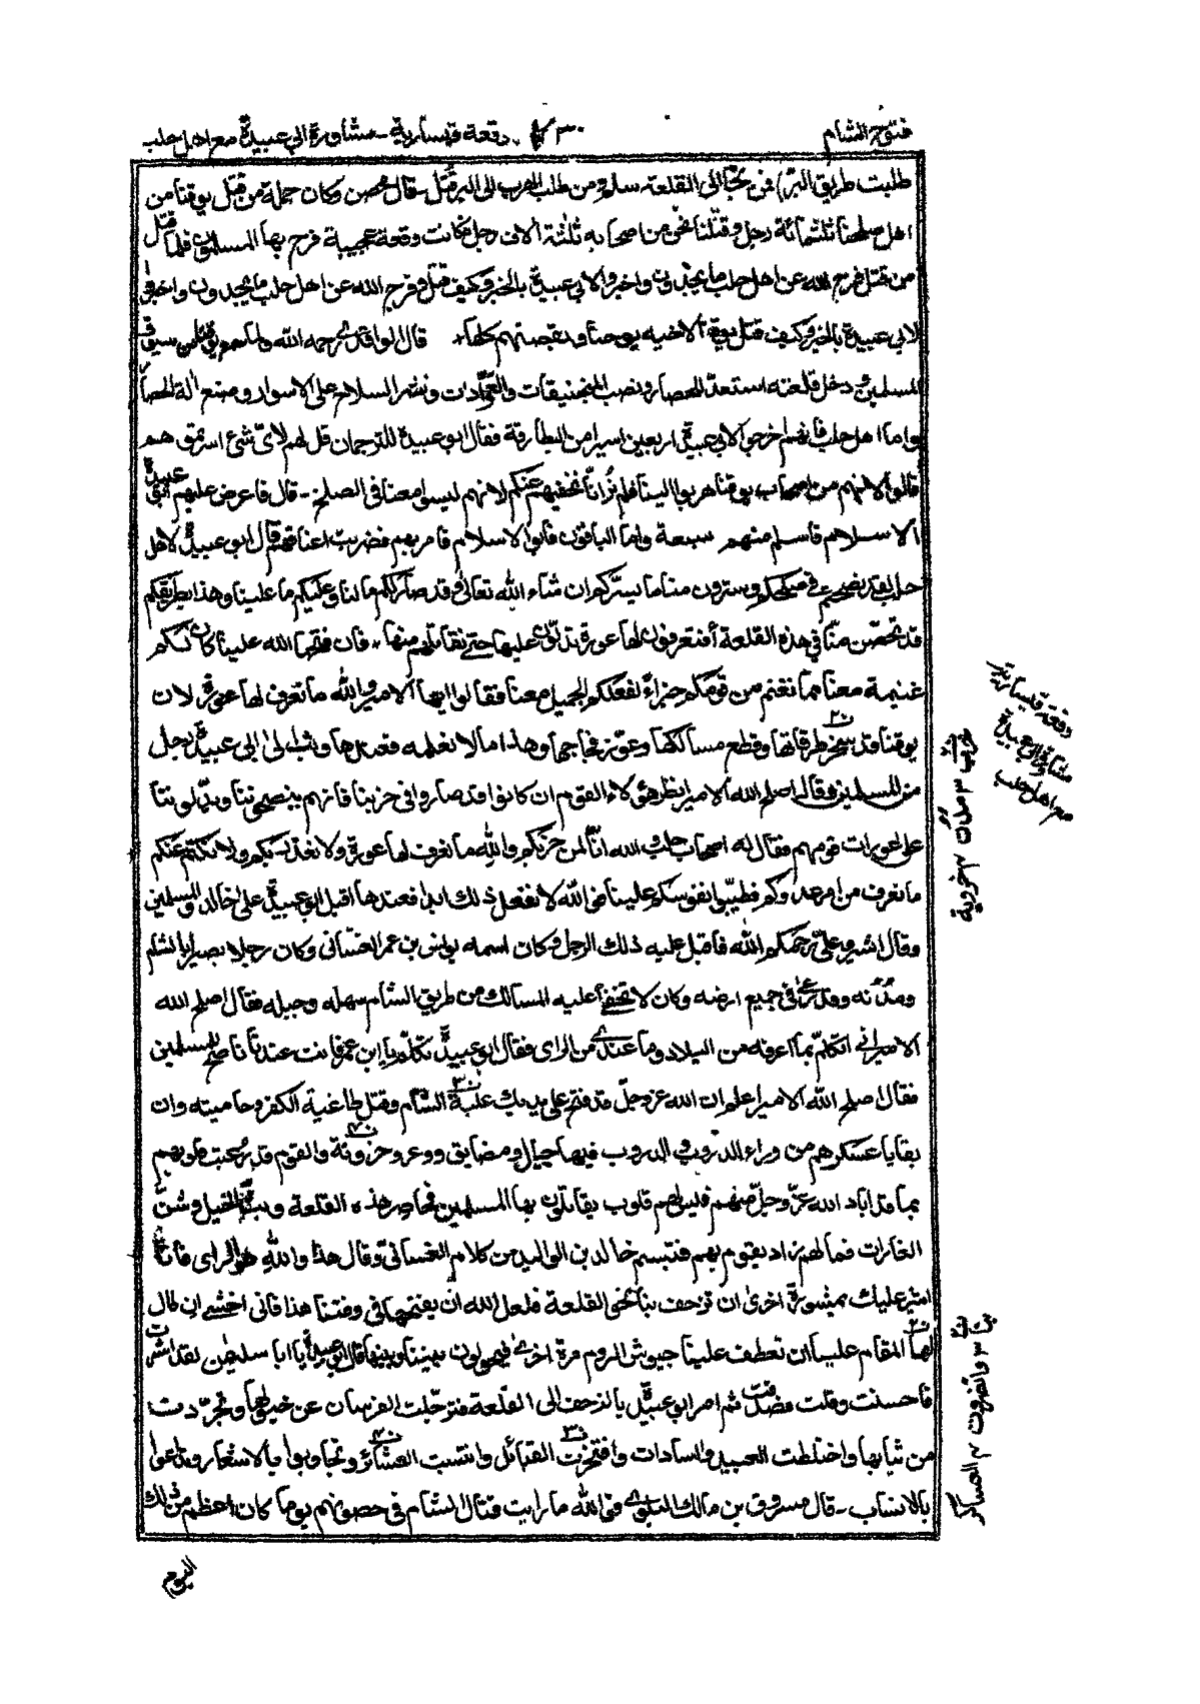 فتوح الشام
٣٠٠ وقعة قيسارية - مشاورة ابى عبيدة مع اهل حلب
طلبت طريق البر) فمن نجا الى القلعة سلم ومن طلب الهرب الى البر قُتل - قال محصن وكان جملة من قتل يوقنا من
اهل صلحنا ثلثمائة رجل وقتلنا نحن من اصحابه ثلثة الاف رجل فكانت وقعة عجيبة فرح بها المسلمون فلما قتل
من قتل فرج الله عن اهل حلب ما يجدون واخبروا لابي عبيدة بالخبر وكيف قتل وفرج الله عن اهل حلب ما يجدون واخبروا
لابي عبيدة بالخبر وكيف قتل يوقنا لاخيه يوحنا وقصتهم كلها، قال الواقدي رحمه الله ولما من سيوف
المسلمين دخل قلعته استعدّ للحصار ونصب المنجنيقات والعرّادات ونشر السلاح على الاسوار وصنع الة الحصار
واما اهل حلب فانهم اخرجوا لابي عبيدة اربعين اسيرا من البطارقة فقال ابو عبيدة للترجمان قل لهم لاى شئ اسرتم هم
قالوا لانهم من اصحاب يوقنا هربوا الينا فلم نُر ان نخفيهم عنكم لانهم ليسوا معنا في الصلح - قال فاعرض عليهم ابو عبيدة
الاسلام فاسلم منهم سبعة واما الباقون فابوا الاسلام فامر بهم فضربت اعناقهم قال ابو عبيدة لاهل
حلب لقد نصحتم في صلحكم وسترون منا ما يسرّكم ان شاء الله تعالى وقد صار لكم ما لنا وعليكم ما علينا وهذا بطريقكم
قد تحصّن منّا في هذه القلعة أفتعرفون لها عورة تدلّون عليها حتى نقاتلهم منها، فان فتحها الله علينا كان لكم
غنيمة معنا مما نغنم من قومكم جزاءً لفعلكم الجميل معنا فقالوا ايها الامير والله ما نعرف لها عورة لان
يوقنا قد طرقاتها وقطع مسالكها وعوّر فجاجها وهذا ما لا نعلمه فعندها وثب الى ابي عبيدة رجل
من المسلمين وقال اصلح الله الامير انظر هؤلاء القوم ان كانوا قد صاروا في حزبنا فانهم ينصحوننا ويدلّوننا
على عورات قومهم فقال له اصحاب حلب والله انّا لمن حزبكم والله ما نعرف لها عورة ولا نكذبكم ولا نكتم عنكم
ما نعرف من امر عدوكم فطيّبوا نفوسكم علينا فوالله لا نفعل ذلك ابدا فعندها اقبل ابو عبيدة على خالد والمسلمين
وقال اشيروا على رحمكم الله فاقبل عليه ذلك الرجل وكان اسمه يونس بن عمر الغسّاني وكان رجلا بصيرا بالشام
ومدنه وقد رعى في جميع ارضه وكان لا تخفى عليه المسالك من طريق الشام سهله وجبله فقال اصلح الله
الامير انى اتكلّم بما اعرفه من البلاد وما عندى من الراى فقال ابو عبيدة تكلّم يا ابن عمر فانت عندنا ناصح للمسلمين
فقال اصلح الله الامير اعلم ان الله عز وجلّ قد فتح على يديك غلبة الشام وقتل طاغية الكفر وحاميته وان
بقايا عسكرهم من وراء الدروب والدروب فيها جبال ومضايق ووعر وحزونة والقوم قد رُعبت قلوبهم
بما قد اباد الله عزّ وجلّ منهم فليس لهم قلوب يقاتلون بها المسلمين فحاصر هذه القلعة وبثّ الخيل وشنّ
الغارات فما لهم زاد يقوم بهم فتبسم خالد بن الوليد من كلام الغساني وقال هذا والله هو الراى فانا
اشير عليك بمشورة اخرى ان تزحف بنا الى القلعة فلعل الله ان يفتحها في وقتنا هذا فانى اخشى ان طال
لها المقام علينا ان تعطف علينا جيوش الروم مرة اخرى فيحولون بيننا وبينها قال ابو عبيدة يا ابا سليمن لقد اشرت
فاحسنت وقلت فصدقت ثم امر ابى عبيدة بالزحف الى القلعة فترجّلت الفرسان عن خيولها وتجرّدت
من ثيابها واختلطت العبيد والسادات وافتخرت القبائل وانتسبت العشائر وتجاوبوا بالاشعار وتداعوا
بالانساب - قال مسروق بن مالك فوالله ما رايت قتال الشام في حصونهم يوما كان اعظم من ذلك
اليوم
وقعة قيسارية
مشاورة ابى عبيدة
مع اهل حلب